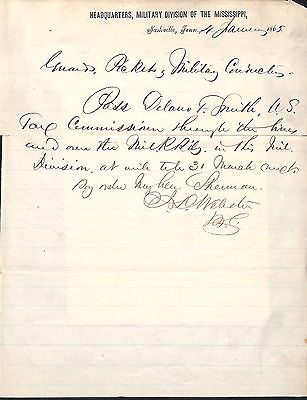 HEADQUARTERS, MILITARY DIVISION OF THE MISSISSIPPI,
Nashville, Tenn. 4 January 1865
Guards, Pickets, & Military Conductors
Pass Delano T. Smith, U.S.
Tax Commissioner through the lines
and over the Mil RRds. in the Mil.
Division, at will till 31 March next
By order Maj Gen Sherman.
J. D. Webster
B. G.